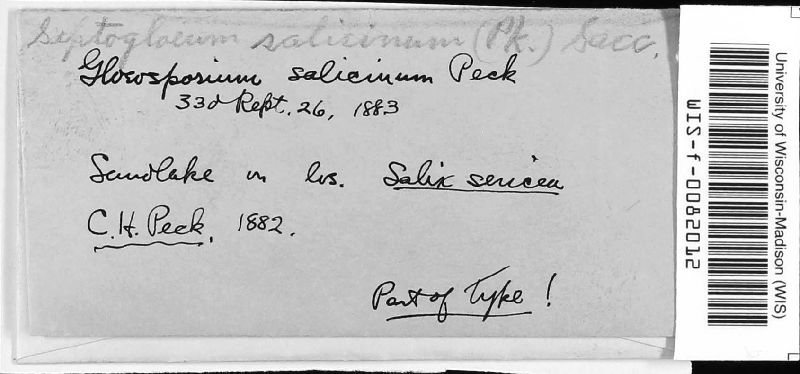 Septogloeum salicinum (Pk.) Sacc.
Gloeosporium salicinum Peck
33d Rept. 26, 1883
Sandlake on lvs. Salix sericea
C.H. Peck, 1882.
Part of Type!
University of Wisconsin-Madison (WIS)
WIS-f-0082012